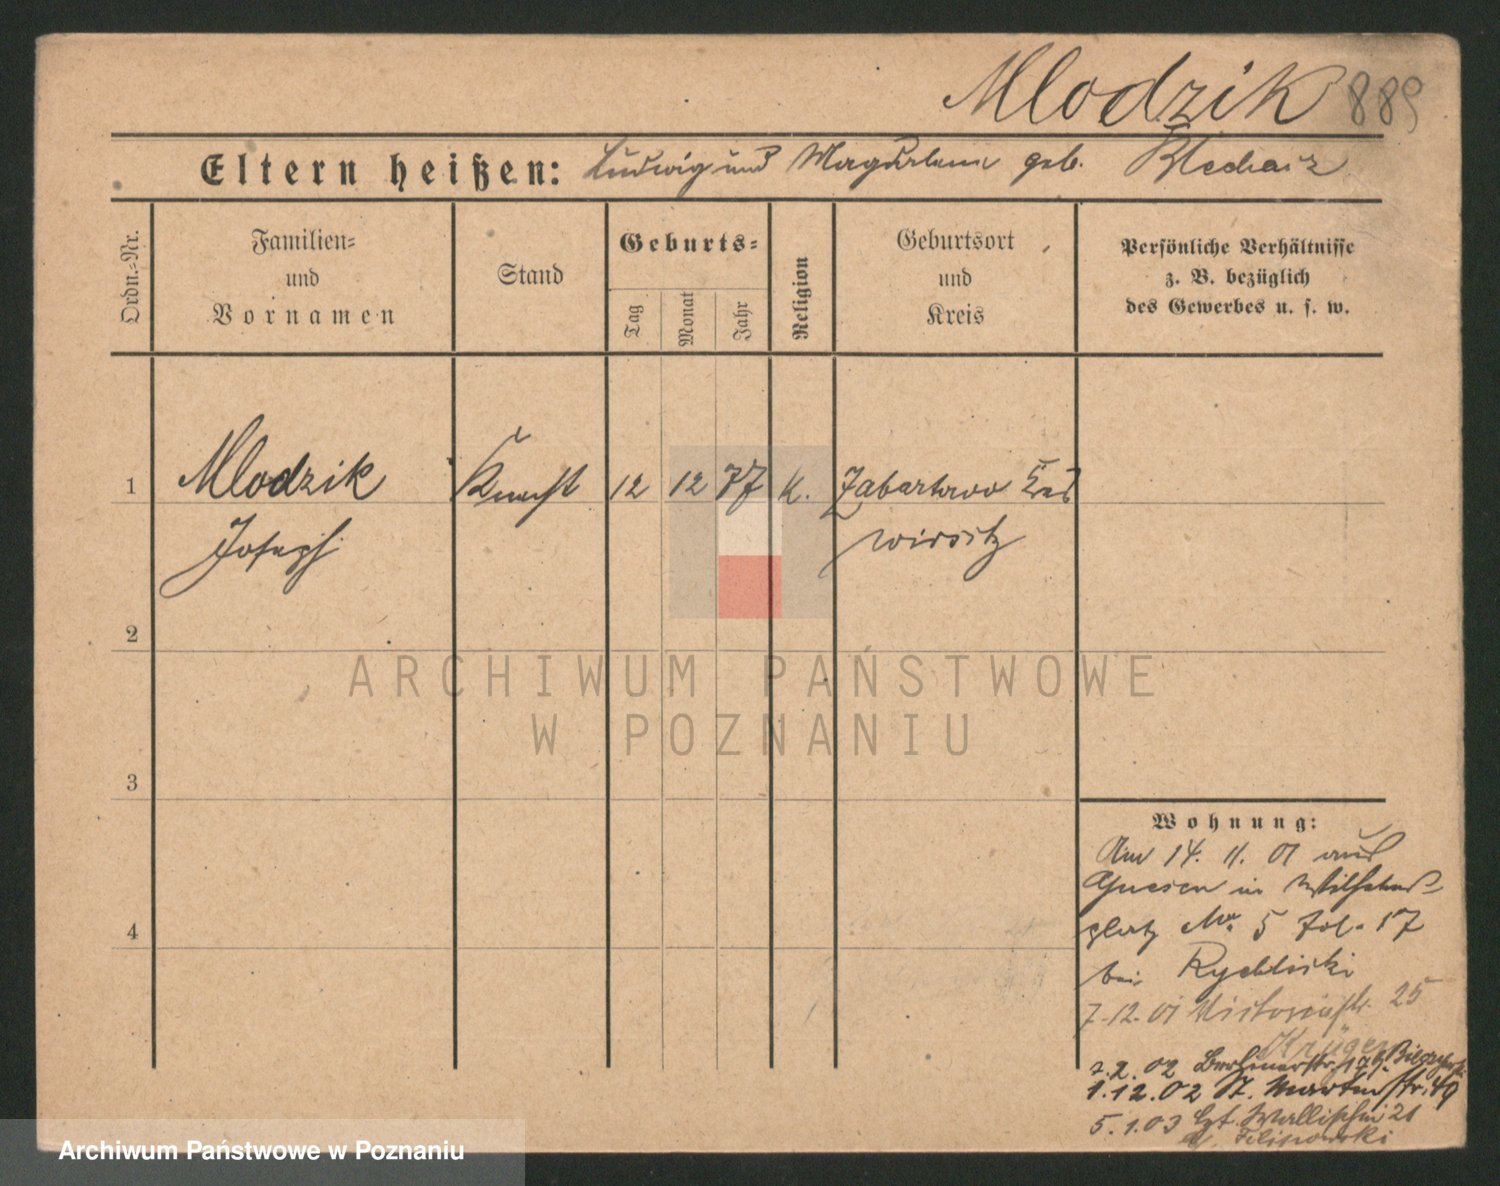 Mlodzik 889
Eltern heißen: Ludwig und Magdalena geb.
Ordn.-Nr.
Familien-
und
Vornamen
Stand
Geburts-
Tag
Monat
Jahr
Religion
Geburtsort
und
Kreis
Persönliche Verhältnisse
z. B. bezüglich
des Gewerbes u. s. w.
1 Mlodzik Knecht 12 12 77 K. Zabartowo Krs
Joseph Wirsitz
2
ARCHIWUM PAŃSTWOWE
W POZNANIU
3
4
Wohnung:
Am 14. 11. 01 aus
Gnesen in Wilhelms
platz No. 5 Fol. 17
bei Rychlicki
7.12.01 Victoriastr. 25
Krüger
2.2.02
1.12.02 St. Martinstr. 49
5.1.03 Gt. Wallischei 21
Filipowski
Archiwum Państwowe w Poznaniu